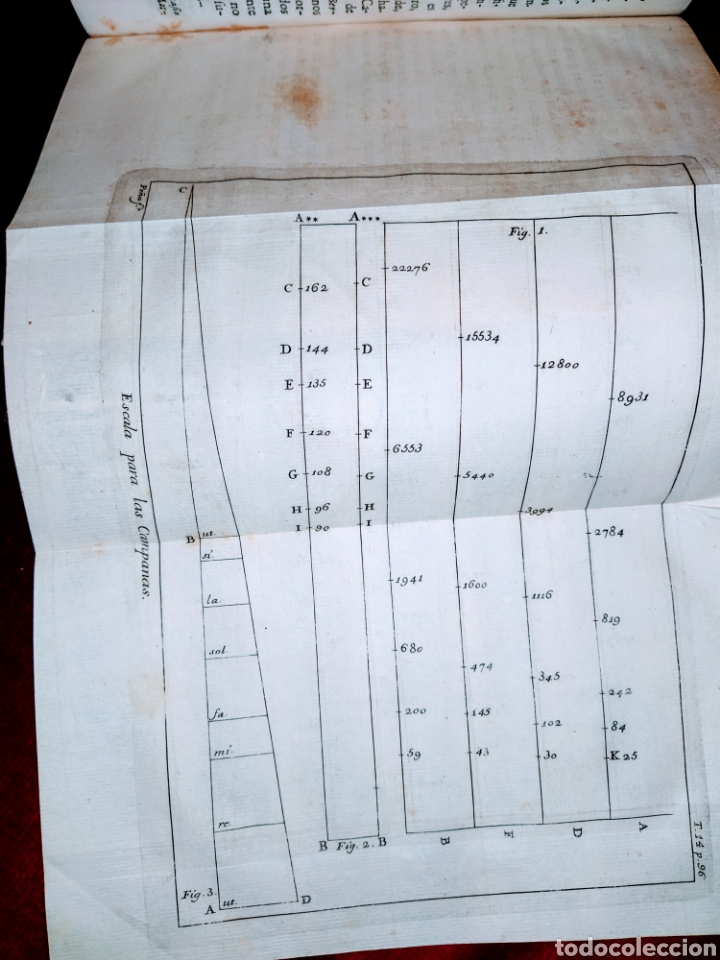 Peña f.
C
A** A***
Fig. 1.
22276
C 162 C
15534
D 144 D
12800
E 135 E
8931
F 120 F
6553
G 108 G
5440
H 96 H
I 90 I
3094
2784
B ut.
si.
1941
1600
la.
1116
819
sol.
680
474
345
242
fa.
200
145
102
84
mi.
59
43
30
K 25
re.
B Fig. 2. B
B
F
D
A
Fig. 3.
A ut. D
T. 14 p. 96
Escala para las Campanas.
todocoleccion